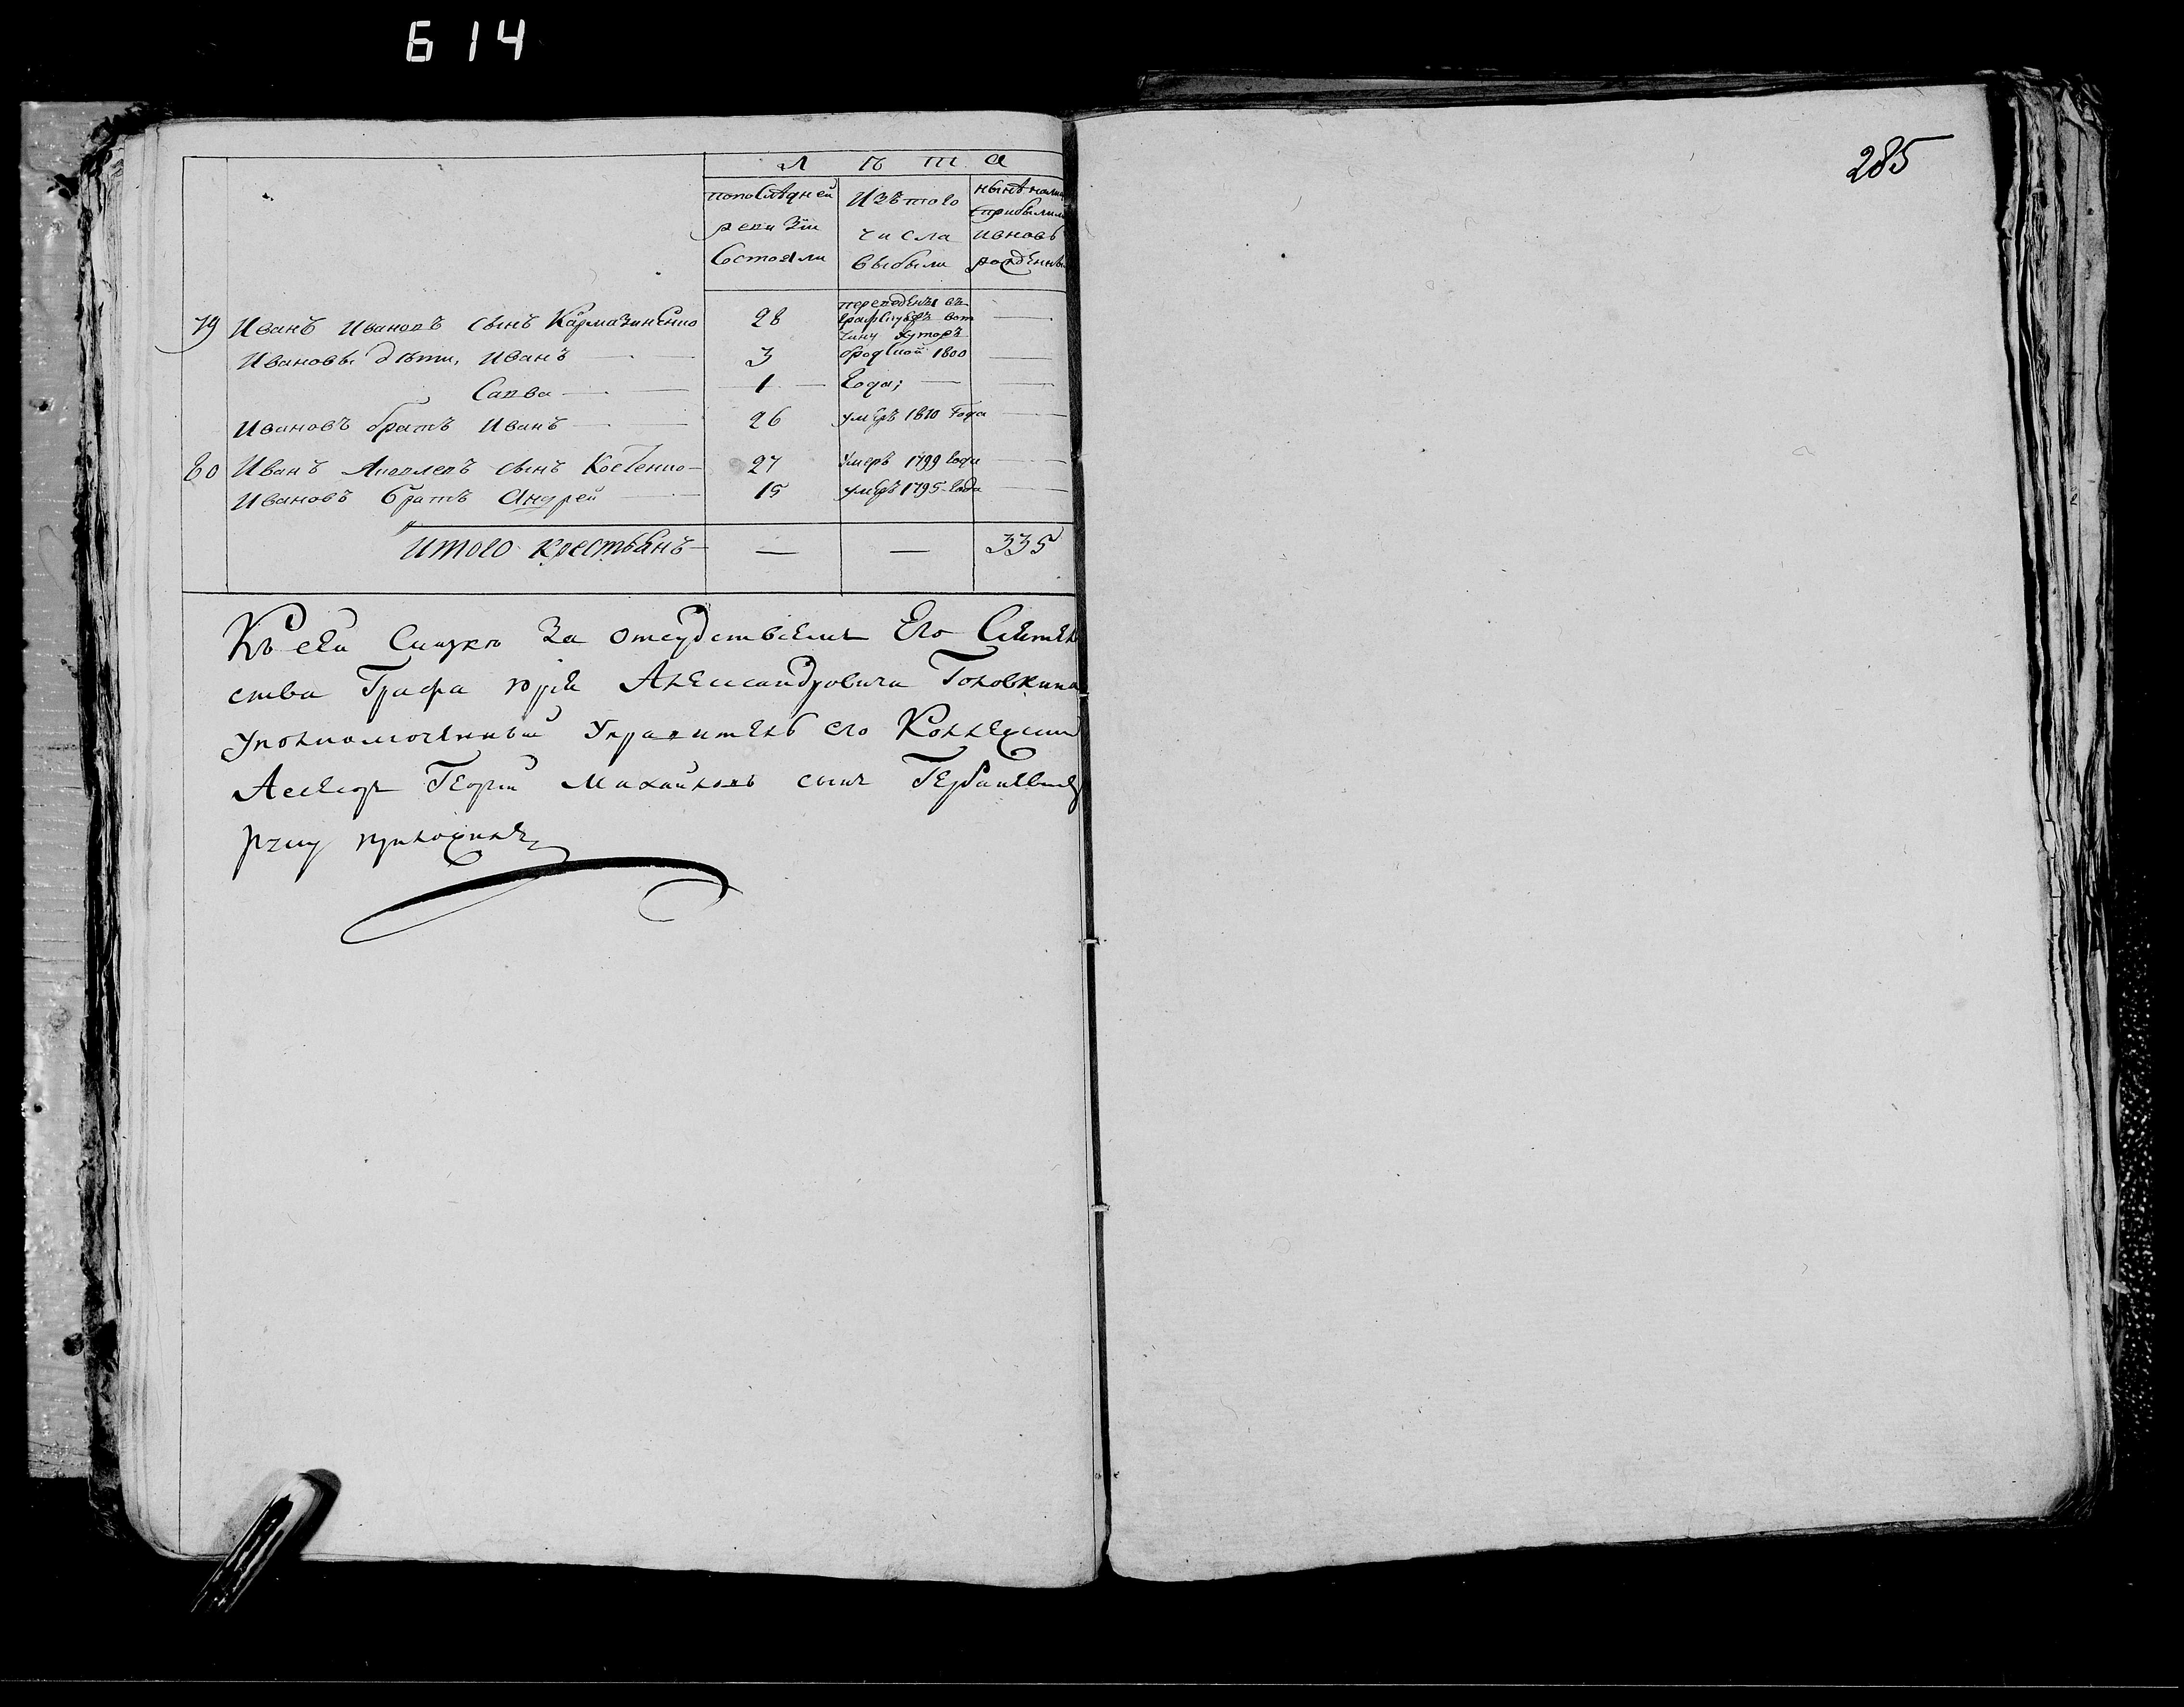 614
285
Л ѣ т а
попослѣдней ревизіи состояли
изъ того числа выбыли
нынѣ налиц прибыли ивновь рожденны
79 Иванъ Ивановъ сынъ Кармазиненко 28 переведены въ
Ивановы дѣти, Иванъ 3 1800
Савва 1 года;
Ивановъ братъ Иванъ 26 умеръ 1810 года
80 Иванъ Яковлевъ сынъ Костенко 27 умеръ 1799 года
Ивановъ братъ Андрей 15 умеръ 1795 года
Итого крестьянъ — — 335
Къ сей Сказкѣ За отсудствіемъ Его Сіятель
ства Графа Юрія Александровича Головкина
уполномоченный Управитель его Коллежскій
Асесоръ Георгій Михайловъ сынъ
руку приложилъ